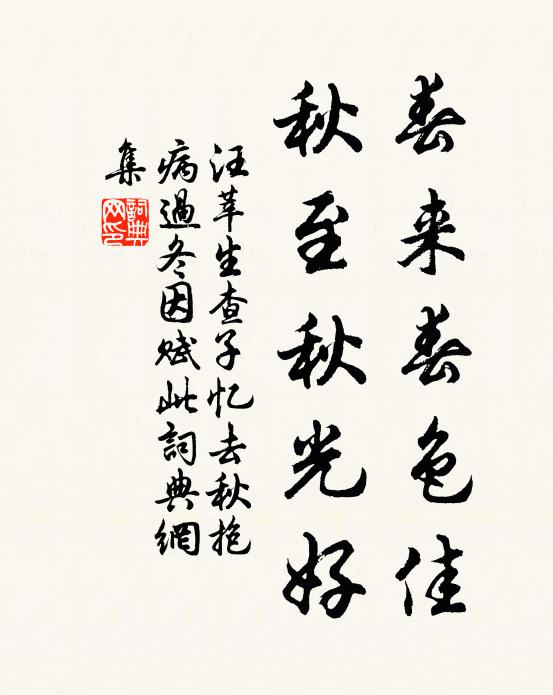 春来春色佳
秋至秋光好
汪莘生查子忆去秋抱
病過冬因赋此詞典網
集
詞典
网印